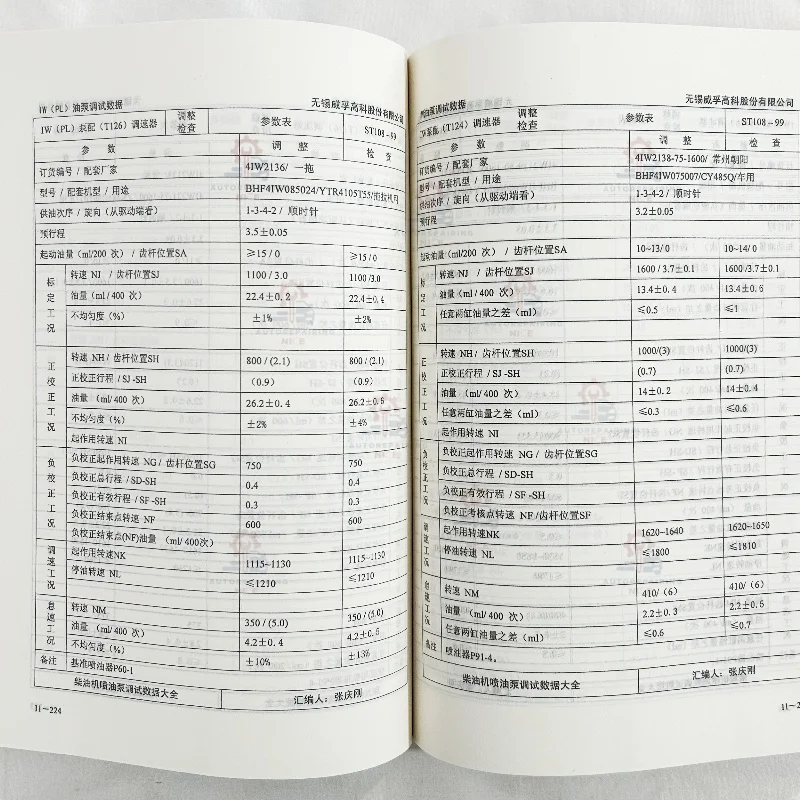 IW（PL）油泵调试数据 无锡威孚高科股份有限公司
IW（PL）泵配（T126）调速器 调整 检查 参数表 ST108-99
参 数 调 整 检 查
订货编号 / 配套厂家 4IW2136/ 一拖
型号 / 配套机型 / 用途 BHF4IW085024/YTR4105T55/拖拉机用
供油次序 / 旋向（从驱动端看） 1-3-4-2 / 顺时针
预行程 3.5±0.05
起动油量（ml/200 次） / 齿杆位置SA ≥15 / 0 ≥15 / 0
标定工况
转速 NJ / 齿杆位置SJ 1100 / 3.0 1100 /3.0
油量（ml / 400 次） 22.4±0.2 22.4±0.4
不均匀度（%） ±1% ±2%
正校正工况
转速 NH / 齿杆位置SH 800 / (2.1) 800 / (2.1)
正校正行程 / SJ -SH （0.9） （0.9）
油量 （ml / 400 次） 26.2±0.4 26.2±0.6
不均匀度（%） ±2% ±4%
起作用转速 NI
负校正工况
负校正起作用转速 NG / 齿杆位置SG 750 750
负校正总行程 / SD-SH 0.4 0.4
负校正有效行程 / SF -SH 0.3 0.3
负校正结束点转速 NF 600 600
负校正结束点(NF)油量 （ml/ 400次）
调速工况
起作用转速NK 1115~1130 1115~1130
停油转速 NL ≤1210 ≤1210
怠速工况
转速 NM 350 / (5.0) 350 / (5.0)
油量 （ml/ 400 次） 4.2±0.4 4.2±0.6
不均匀度（%） ±10% ±13%
备注 基准喷油器P60-1
柴油机喷油泵调试数据大全 汇编人：张庆刚
11～224
油泵调试数据 无锡威孚高科股份有限公司
IW泵配（T124）调速器 调整 检查 参数表 ST108-99
参 数 调 整 检 查
订货编号 / 配套厂家 4IW2138-75-1600/ 常州朝阳
型号 / 配套机型 / 用途 BHF4IW075007/CY485Q/车用
供油次序 / 旋向（从驱动端看） 1-3-4-2 / 顺时针
预行程 3.2±0.05
起动油量（ml/200 次） / 齿杆位置SA 10~13/ 0 10~14/ 0
标定工况
转速 NJ / 齿杆位置SJ 1600 / 3.7±0.1 1600 /3.7±0.1
油量（ml / 400 次） 13.4±0.4 13.4±0.6
任意两缸油量之差（ml） ≤0.5 ≤1
正校正工况
转速 NH / 齿杆位置SH 1000/(3) 1000/(3)
正校正行程 / SJ -SH (0.7) (0.7)
油量：（ml / 400 次） 14±0.2 14±0.4
任意两缸油量之差（ml） ≤0.3 ≤0.6
起作用转速 NI
负校正工况
负校正起作用转速 NG / 齿杆位置SG
负校正总行程 / SD-SH
负校正有效行程 / SF -SH
负校正考核点转速 NF /齿杆位置SF
调速工况
起作用转速NK 1620~1640 1620~1650
停油转速 NL ≤1800 ≤1810
怠速工况
转速 NM 410/（6） 410/（6）
油量（ml / 400 次） 2.2±0.3 2.2±0.5
任意两缸油量之差（ml） ≤0.6 ≤0.7
备注 喷油器P91-4。
柴油机喷油泵调试数据大全 汇编人：张庆刚